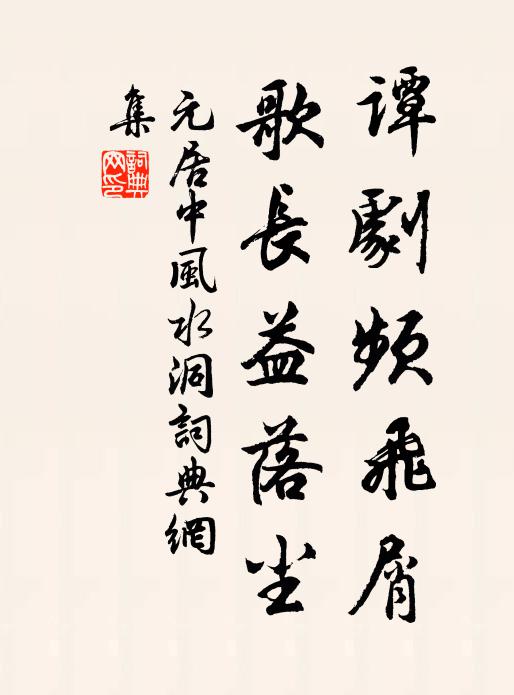 譚劇頻飛屑
歌長益落尘
元居中風水洞詞典網
集
詞典網印